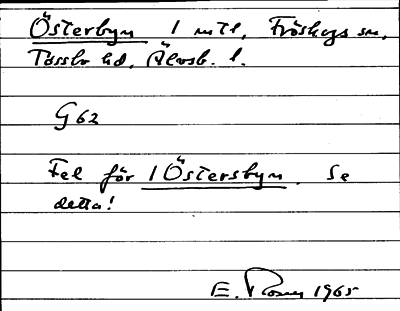 Österbyn 1 mtl, Fröskogs sn,
Tössbo hd, Älvsb. l.
G 62
Fel för 1 Östersbyn. Se
detta!
E. 1965